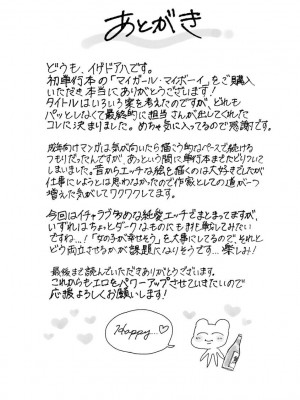 あとがき
どうも、イゲドアハです。
初単行本の「マイガール・マイボーイ」をご購入
いただき本当にありがとうございます!
タイトルはいろいろ案を考えたのですが、どれも
パッとしなくて最終的に担当さんが出してくれた
コレに決まりました。めちゃ気に入ってるので感謝です。
成年向けマンガは気が向いたら描く的なペースで続ける
つもりだったんですが、あっという間に単行本までたどりついて
しまいました。昔からエッチな絵を描くのは大好きでしたが
仕事にしようとは思わなかったので作家としての道が一つ
増えた気がしてワクワクしてます。
今回はイチャラブ多めな純愛エッチでまとまってますが、
いずれはちょっとダークなものにも挑戦してみたい
ですね…!「女の子が幸せそう」を大事にしてるので、それと
どう両立させるかが課題になりそうです…楽しみ!
最後まで読んでいただきありがとうございます。
これからもエロをパワーアップさせていきたいので
応援よろしくお願いします!
Happy...♡